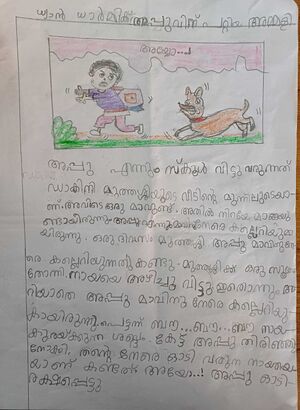 ധ്യാൻ ധാർമിക് അപ്പുവിന് പറ്റിയ അമളി
അയ്യോ...!
അപ്പു എന്നും സ്കൂൾ വിട്ടു വരുന്നത്
ഡാകിനി മുത്തശ്ശിയുടെ വീടിന്റെ മുന്നിലൂടെയാ-
ണ്. അവിടെ ഒരു മാവുണ്ട്. അതിൽ നിറയെ മാങ്ങയു-
ണ്ടായിരുന്നു. അപ്പു എന്നും മാവിനു നേരെ കല്ലെറിയുമാ
യിരുന്നു. ഒരു ദിവസം മുത്തശ്ശി അപ്പു മാവിനു നേ
രെ കല്ലെറിയുന്നതു കണ്ടു. മുത്തശ്ശിക്ക് ഒരു ബുദ്ധി
തോന്നി. നായയെ അഴിച്ചു വിട്ടു. ഇതൊന്നും അ
റിയാതെ അപ്പു മാവിനു നേരെ കല്ലെറിയു
കയായിരുന്നു. പെട്ടന്ന് ബൗ...ബൗ...ബൗ നായ
കുരയ്ക്കുന്ന ശബ്ദം കേട്ട് അപ്പു തിരിഞ്ഞു
നോക്കി. തന്റെ നേരെ ഓടി വരുന്ന നായയെ
യാണ് കണ്ടത്. അയോ..! അപ്പു ഓടി
രക്ഷപ്പെട്ടു